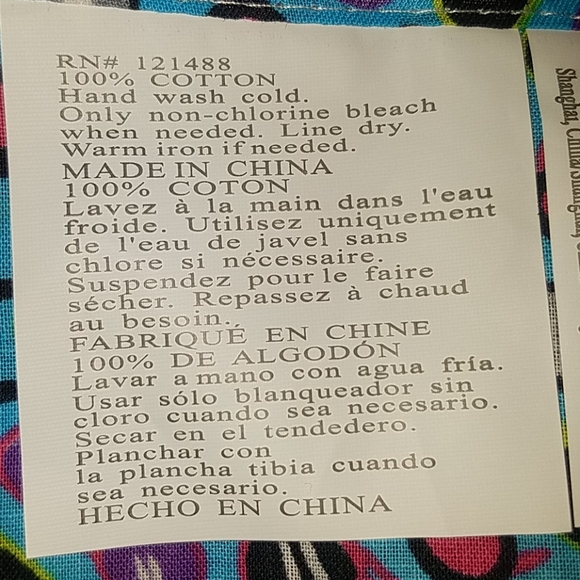 RN# 121488
100% COTTON
Hand wash cold.
Only non-chlorine bleach
when needed. Line dry.
Warm iron if needed.
MADE IN CHINA
100% COTON
Lavez à la main dans l'eau
froide. Utilisez uniquement
de l'eau de javel sans
chlore si nécessaire.
Suspendez pour le faire
sécher. Repassez à chaud
au besoin.
FABRIQUÉ EN CHINE
100% DE ALGODÓN
Lavar a mano con agua fría.
Usar sólo blanqueador sin
cloro cuando sea necesario.
Secar en el tendedero.
Planchar con
la plancha tibia cuando
sea necesario.
HECHO EN CHINA
Shanghai, China